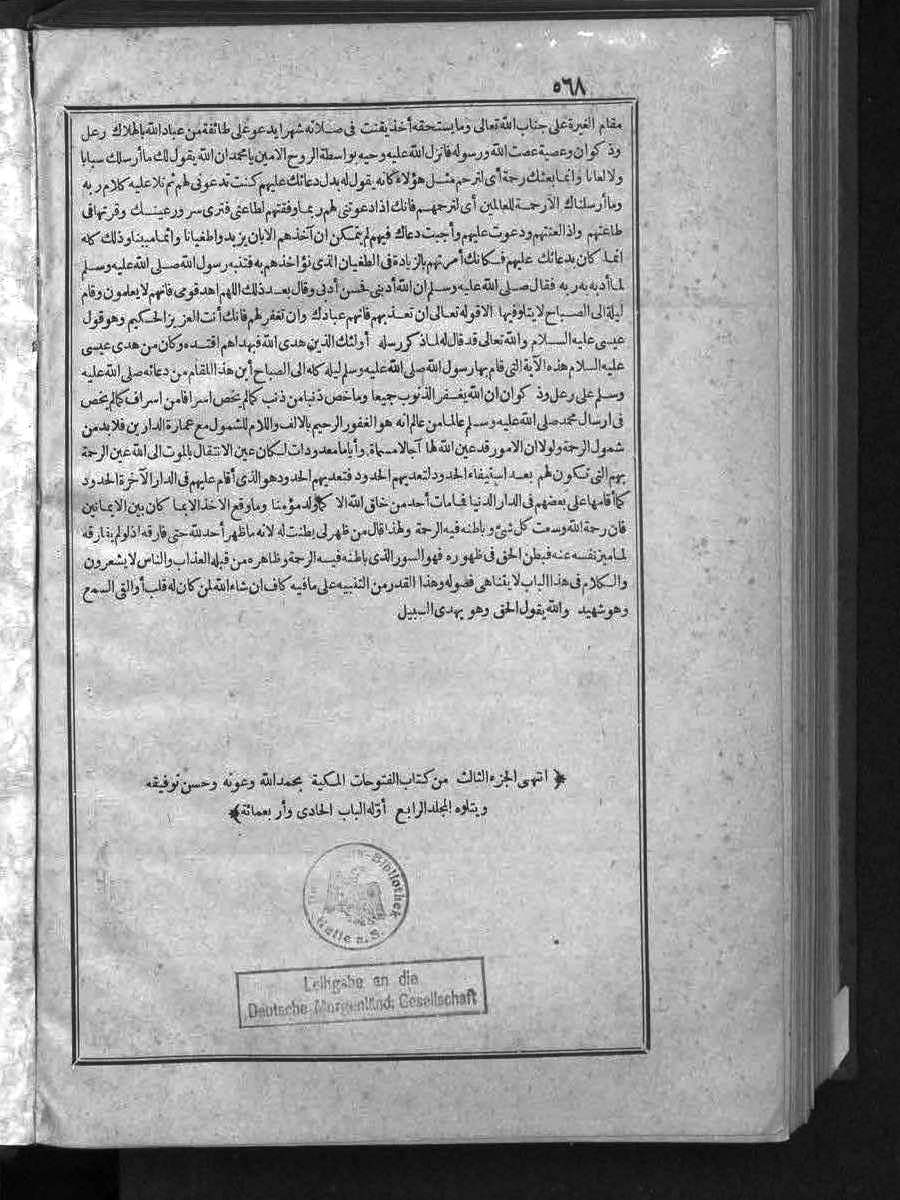 ٥٦٨
مقام الغيرة على جناب الله تعالى وما يستحقه أخذ يقنت فى صلاته شهرا يدعو على طائفة من عباد الله بالهلاك رعل
وذكوان وعصية عصت الله ورسوله فانزل الله عليه وحيه بواسطة الروح الامين يا محمد ان الله يقول لك ما أرسلك سبابا
ولا لعانا وانما بعثك رحة أى لترحم مثل هؤلاء كانه يقول له بدل دعائك عليهم كنت تدعونى لهم ثم تلا عليه كلام ربه
وما أرسلناك الا رحمة للعالمين أى لترجهم فانك اذا دعوتنى لهم ربما وفقتهم لطاعتى فترى سرور عينك وقرتها فى
طاعتهم واذا لعنتهم ودعوت عليهم وأجبت دعاك فيهم لم يتمكن ان آخذهم الا بان يزيدوا طغيانا واثما مبينا وذلك كله
انما كان بدعائك عليهم فكانك أمرتهم بالزيادة فى الطغيان الذى نؤاخذهم به فتنبه رسول الله صلى الله عليه وسلم
لما أدبه به ربه فقال صلى الله عليه وسلم ان الله أدبنى فسن أدبى وقال بعد ذلك اللهم اهد قومى فانهم لا يعلمون وقام
ليلة الى الصباح لا يتلو فيها الا قوله تعالى ان تعذبهم فانهم عبادك وان تغفر لهم فانك أنت العزيز الحكيم وهو قول
عيسى عليه السلام والله تعالى قد قال له لما ذكر رسله أولئك الذين هدى الله فبهداهم اقتده وكان من هدى عيسى
عليه السلام هذه الآية التى قام بها رسول الله صلى الله عليه وسلم ليله كله الى الصباح أين هذا المقام من دعائه صلى الله عليه
وسلم على رعل وذكوان ان الله يغفر الذنوب جميعا وما خص ذنبا من ذنب كما لم يخص اسرافا من اسراف كما لم يخص
فى ارسال محمد صلى الله عليه وسلم عالما من عالم انه هو الغفور الرحيم بالالف واللام للشمول مع عمارة الدارين فلا بد من
شمول الرحة ولولا ان الامور قد عين الله لها آجالا مسماة وأياما معدودات لكان عين الانتقال بالموت الى الله عين الرحة
بهم التى تكون لهم بعد استيفاء الحدود لتعديهم الحدود فتعديهم الحدود هو الذى أقام عليهم فى الدار الآخرة الحدود
كما أقامها على بعضهم فى الدار الدنيا فما مات أحد من خلق الله الا كما ولد مؤمنا وما وقع الاخذ الا بما كان بين الايمانين
فان رحة الله وسعت كل شئ و باطنه فيه الرحة ولهذا قال من ظهر لى بطنت له لانه ما ظهر أحد لله حتى فارقه اذ لو لم يفارقه
لما ميز نفسه عنه فبطن الحق فى ظهوره فهو السور الذى باطنه فيه الرحة وظاهره من قبله العذاب والناس لا يشعرون
والكلام فى هذا الباب لا يتناهى فصوله وهذا القدر من التنبيه على ما فيه كاف ان شاء الله لمن كان له قلب أو ألقى السمع
وهو شهيد والله يقول الحق وهو يهدى السبيل
﴿ انتهى الجزء الثالث من كتاب الفتوحات المكية بحمد الله وعونه وحسن توفيقه
ويتلوه المجلد الرابع أوّله الباب الحادى وأربعمائة ﴾
-Bibliothek
Halle a. S.
Leihgabe an die
Deutsche Morgenländ. Gesellschaft